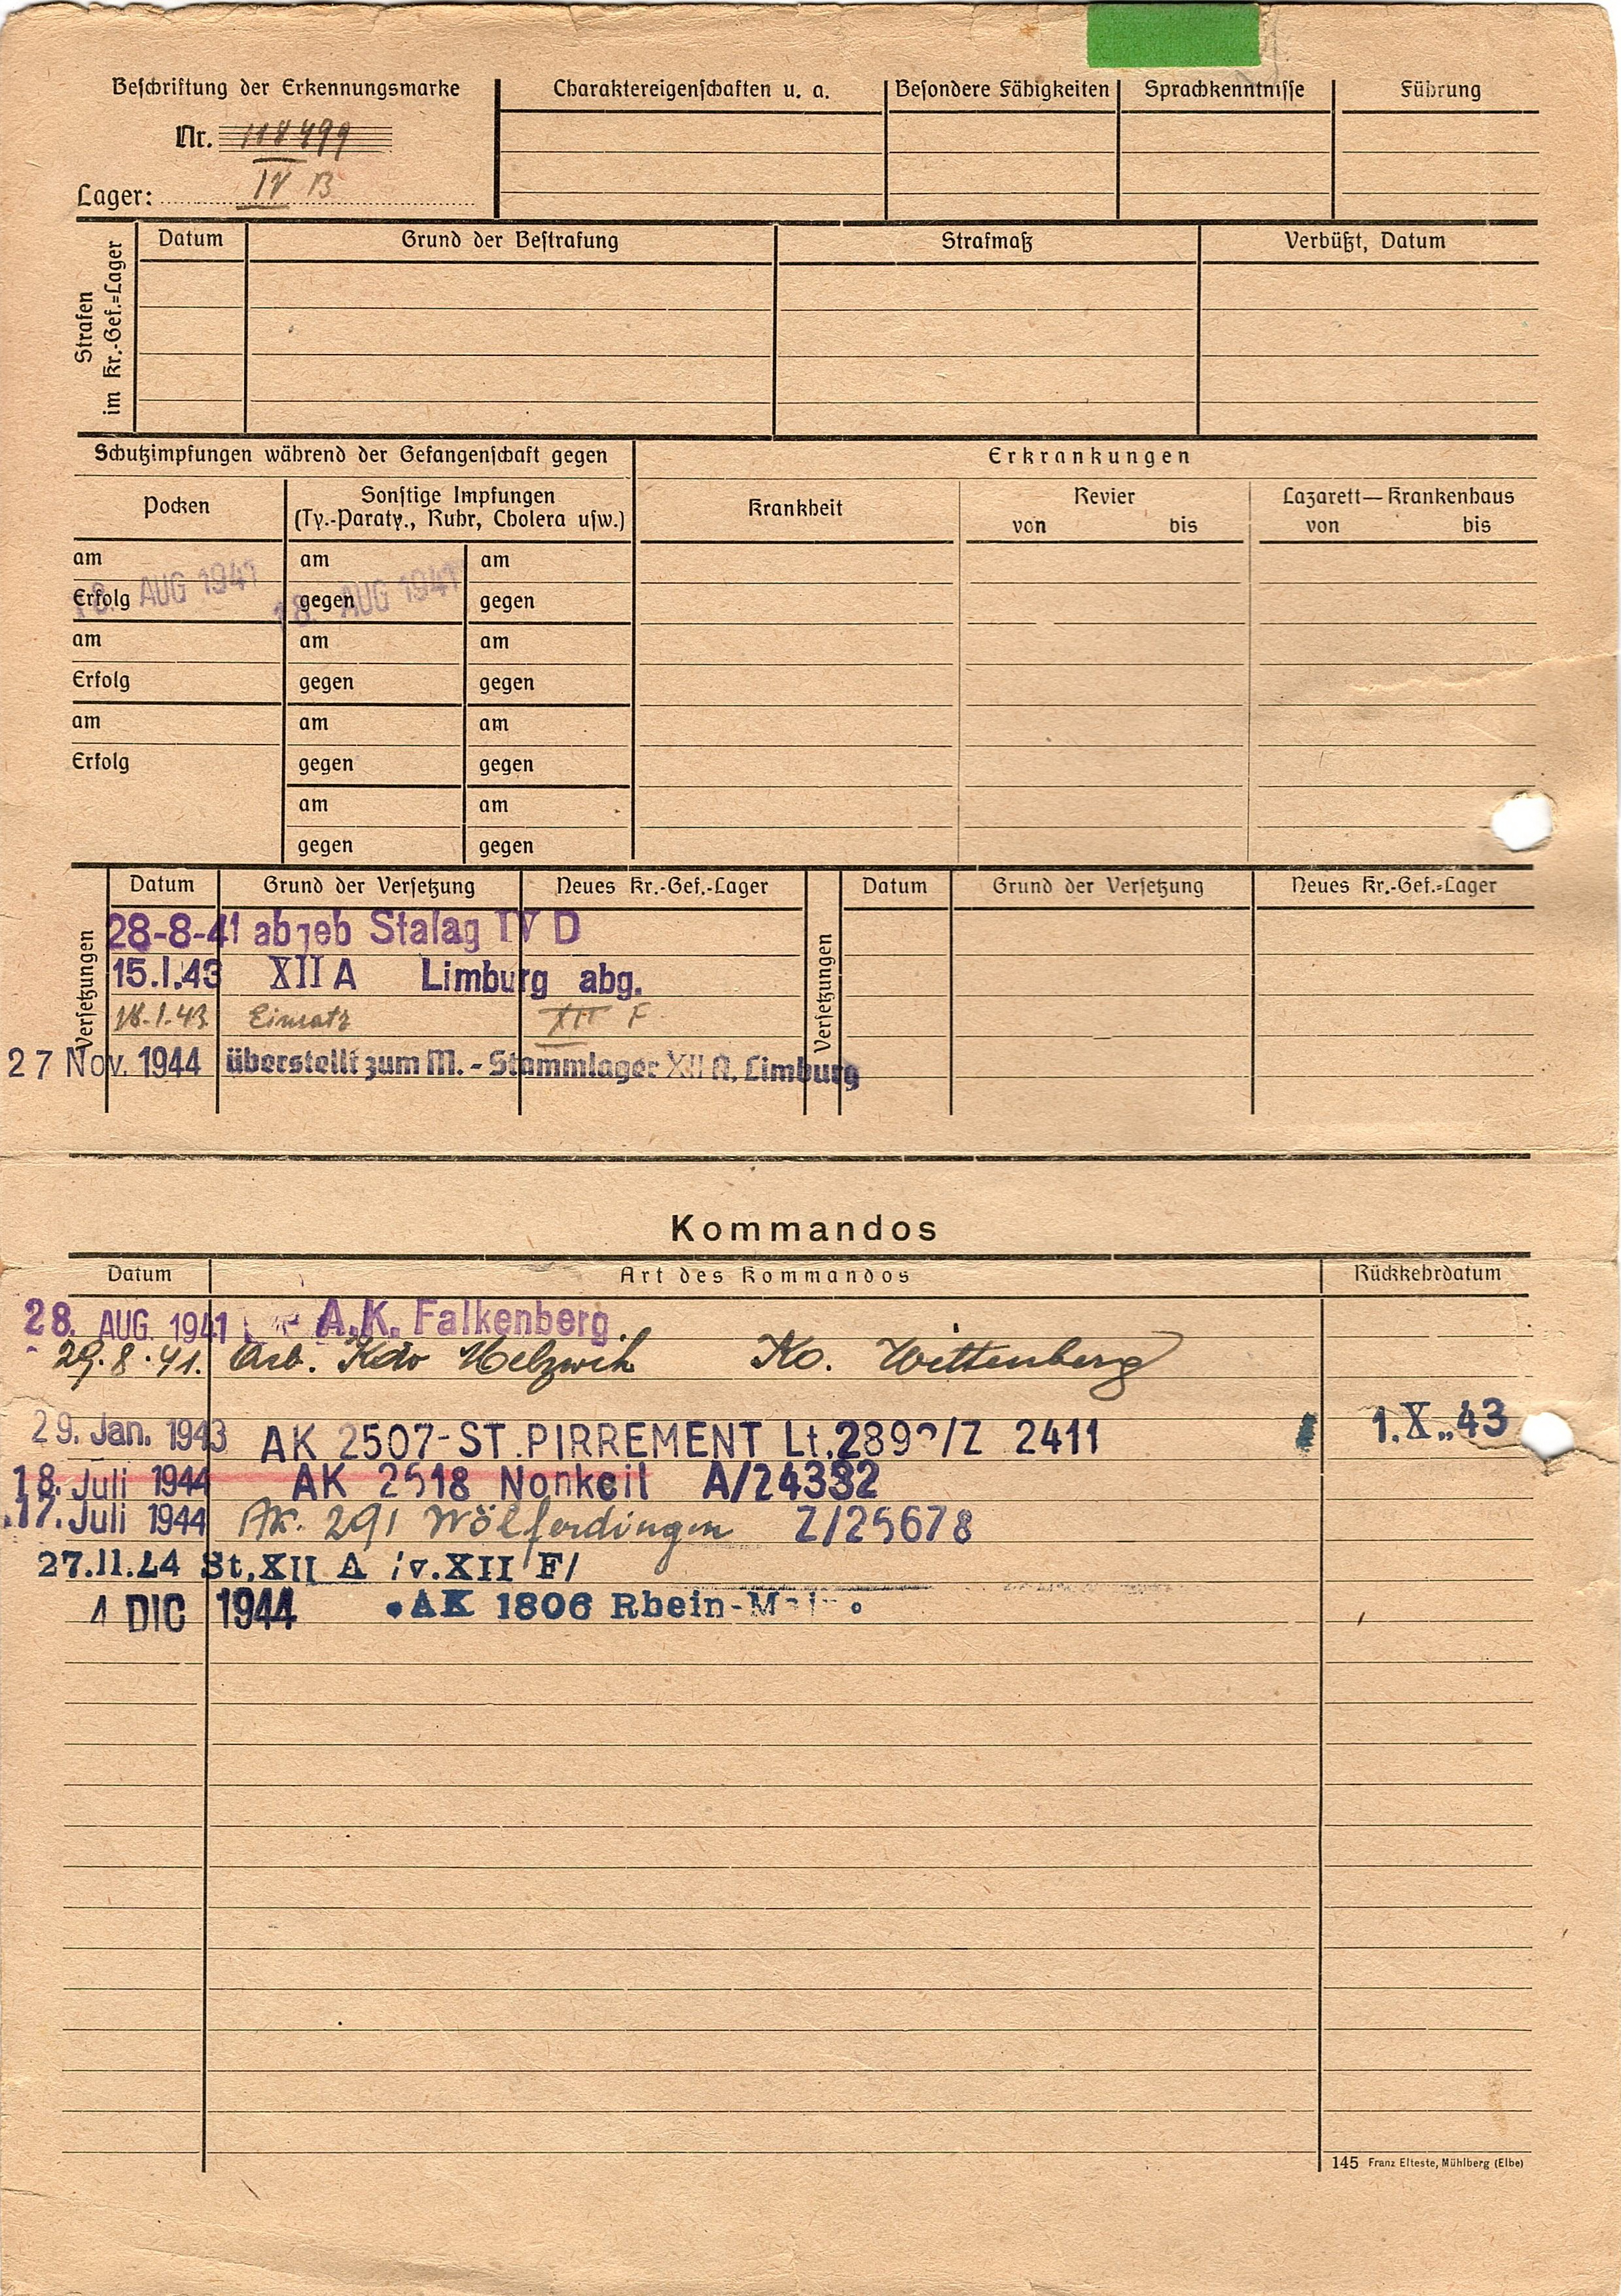 Beschriftung der Erkennungsmarke
Nr. 118499
Lager: IV B
Charaktereigenschaften u. a.
Besondere Fähigkeiten
Sprachkenntnisse
Führung
Strafen im Kr.-Gef.=Lager
Datum
Grund der Bestrafung
Strafmaß
Verbüßt, Datum
Schutzimpfungen während der Gefangenschaft gegen
Erkrankungen
Pocken
Sonstige Impfungen
(Ty.-Paraty., Ruhr, Cholera usw.)
Krankheit
Revier
von bis
Lazarett—Krankenhaus
von bis
am am am
18. AUG 1941 18. AUG 1941
Erfolg gegen gegen
am am am
Erfolg gegen gegen
am am am
Erfolg gegen gegen
am am
gegen gegen
Versetzungen
Datum Grund der Versetzung Neues Kr.-Gef.-Lager
28-8-41 abgeb Stalag IV D
15.1.43 XII A Limburg abg.
18.1.43 Einsatz XII F
27 Nov. 1944 überstellt zum M.-Stammlager XII A, Limburg
Versetzungen
Datum Grund der Versetzung Neues Kr.-Gef.=Lager
Kommandos
Datum Art des Kommandos Rückkehrdatum
28. AUG. 1941 A.K. Falkenberg
29.8.41. Arb. Kdo Melzwik Ko. Wittenberg
29. Jan. 1943 AK 2507-ST.PIRREMENT Lt. /Z 2411 1.X..43
18. Juli 1944 AK 2518 Nonkeil A/24332
17. Juli 1944 AK. 291 Wölferdingen Z/25678
27.11.44 St.XII A /v.XII F/
4 DIC 1944 AK 1806 Rhein-Main
145 Franz Elteste, Mühlberg (Elbe)